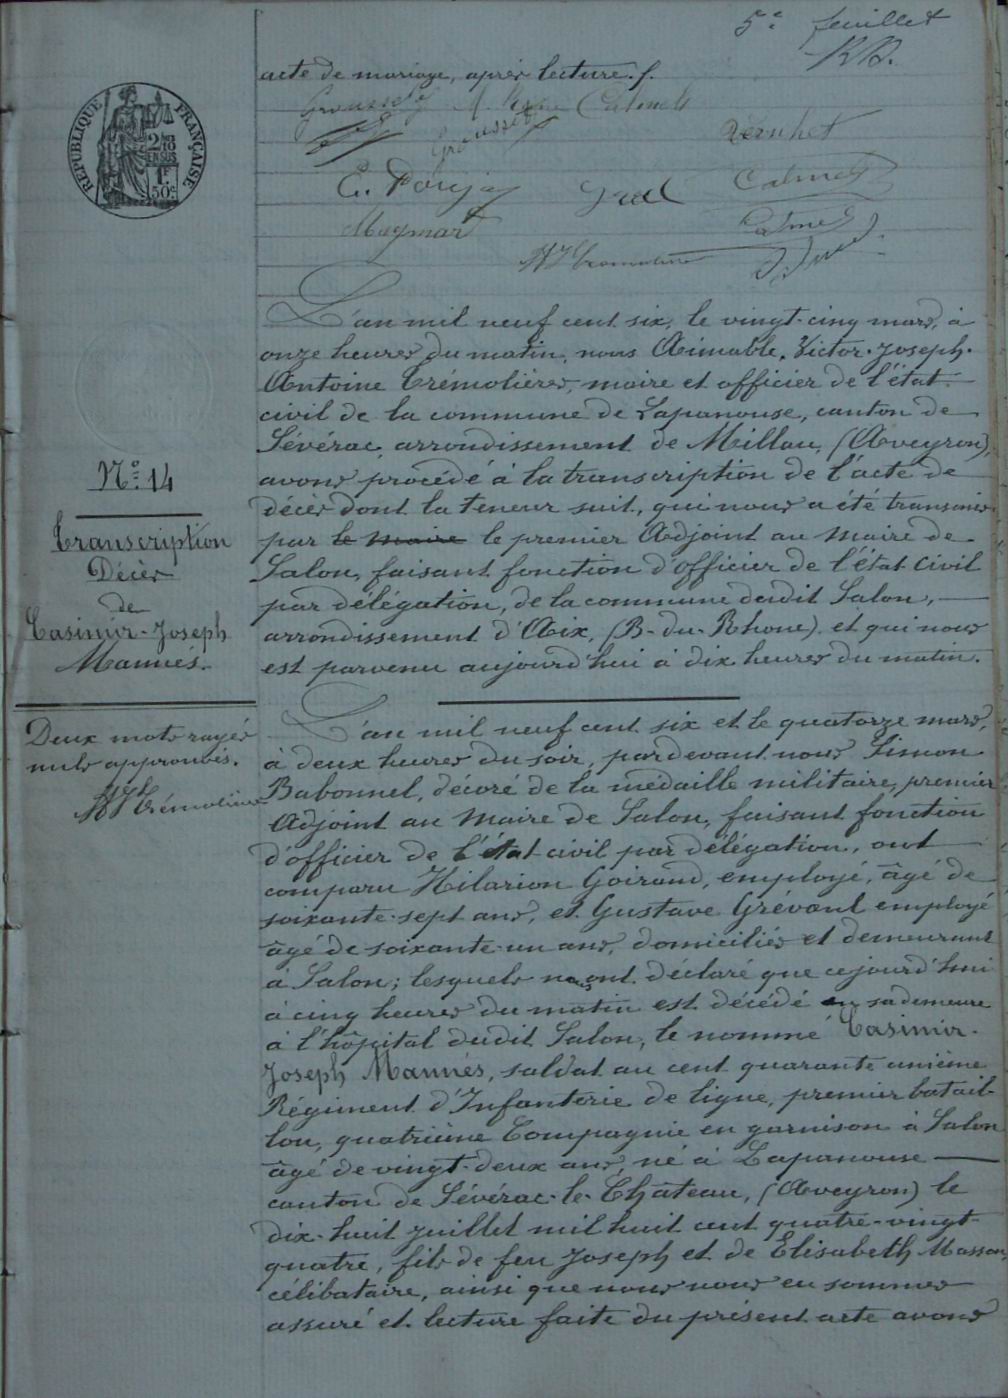 5e feuillet
acte de mariage, après lecture. /.
Calmels
RÉPUBLIQUE FRANÇAISE
2/10 EN SUS
1F 50c
Vernhet
Calmels
Maymard
Calmels
L'an mil neuf cent six, le vingt-cinq mars, à
onze heures du matin, nous Aimable, Victor-Joseph-
Antoine Trémolières, maire et officier de l'état-
civil de la commune de Lapanouse, canton de
Sévérac, arrondissement de Millau, (Aveyron),
avons procédé à la transcription de l'acte de
décès dont la teneur suit, qui nous a été transmis
par le maire le premier Adjoint au maire de
Salon, faisant fonction d'officier de l'état civil
par délégation, de la commune dudit Salon,
arrondissement d'Aix, (B-du-Rhone) et qui nous
est parvenu aujourd'hui à dix heures du matin.
No 14
Transcription
Décès
de
Casimir-Joseph
Mannés.
Deux mots rayés
nuls approuvés.
Trémolières
L'an mil neuf cent six et le quatorze mars,
à deux heures du soir, pardevant nous Simon
Babonnel, décoré de la médaille militaire, premier
Adjoint au Maire de Salon, faisant fonction
d'officier de l'état civil par délégation, ont
comparu Hilarion Goirand, employé, âgé de
soixante-sept ans, et Gustave Grévoul employé
âgé de soixante-un ans, domiciliés et demeurant
à Salon; lesquels nous ont déclaré que cejourd'hui
à cinq heures du matin est décédé en sa demeure
à l'hôpital dudit Salon, le nommé Casimir-
Joseph Mannés, soldat au cent quarante unième
Régiment d'Infanterie de ligne, premier batail-
lon, quatrième Compagnie en garnison à Salon
âgé de vingt-deux ans, né à Lapanouse
canton de Sévérac-le-Château, (Aveyron) le
dix-huit juillet mil huit cent quatre-vingt-
quatre, fils de feu Joseph et de Elisabeth Masson,
célibataire, ainsi que nous nous en sommes
assuré et lecture faite du présent acte avons